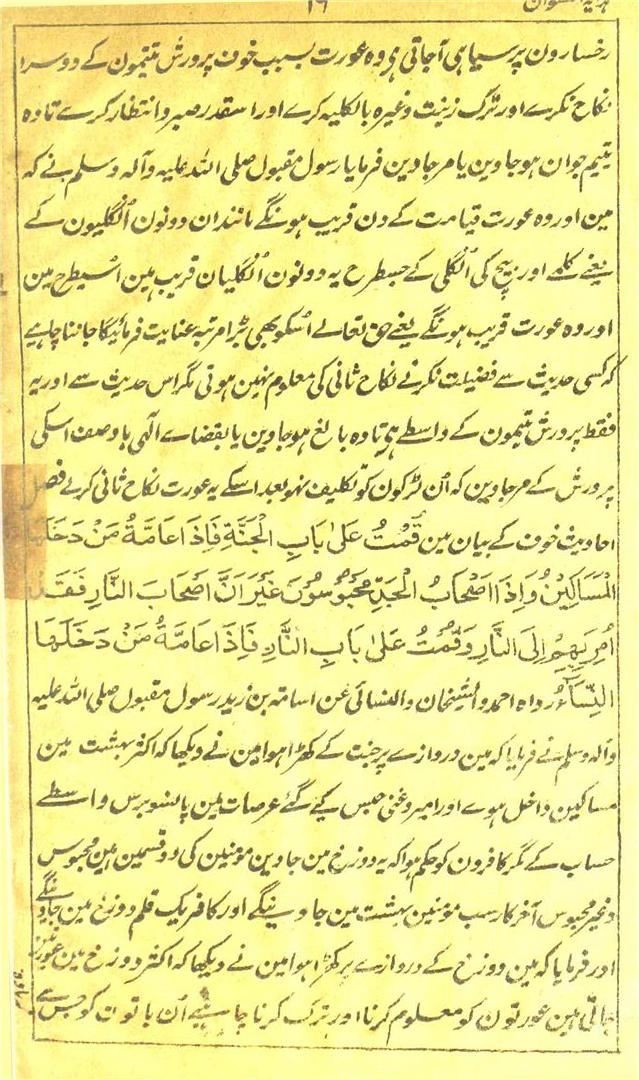 ۱۶
رخسارون پر سیاہی آجاتی ہی وہ عورت بسبب خوف پرورش یتیمون کے دوسرا
نکاح نکرے اور ترک زینت وغیرہ بالکلیہ کرے اور اسقدر صبر و انتظار کرے تا وہ
یتیم جوان ہو جاوین یا مر جاوین فرمایا رسول مقبول صلی اللہ علیہ وآلہ وسلم نے کہ
مین اور وہ عورت قیامت کے دن قریب ہونگے مانند ان دونون انگلیون کے
یعنے کلمے اور بیچ کی انگلی کے جسطرح یہ دونون انگلیان قریب ہین اسیطرح مین
اور وہ عورت قریب ہونگے یعنے حق تعالے اسکو بھی بڑا مرتبہ عنایت فرمائیگا جاننا چاہیے
کہ کسی حدیث سے فضیلت نکرنے نکاح ثانی کی معلوم نہین ہوتی مگر اس حدیث سے اور یہ
فقط پرورش یتیمون کے واسطے ہی تا وہ بالغ ہو جاوین یا بقضاے الٰہی باوصف اسکی
پرورش کے مر جاوین کہ اُن لڑکون کو تکلیف نہو بعد اسکے یہ عورت نکاح ثانی کرے فصل
احادیث خوف کے بیان مین قُمْتُ عَلٰی بَابِ الْجَنَّةِ فَاِذَا عَامَّةُ مَنْ دَخَلَهَا
الْمَسَاكِيْنُ وَاِذَا اَصْحَابُ الْجَدِّ مَحْبُوْسُوْنَ غَيْرَ اَنَّ اَصْحَابَ النَّارِ فَقَدْ
اُمِرَ بِهِمْ اِلَى النَّارِ وَقُمْتُ عَلٰی بَابِ النَّارِ فَاِذَا عَامَّةُ مَنْ دَخَلَهَا
النِّسَاءُ رواہ احمد والشیخان والنسائی عن اسامۃ بن زید رسول مقبول صلی اللہ علیہ
وآلہ وسلم نے فرمایا کہ مین دروازے پر جنت کے کھڑا ہوا مین نے دیکھا کہ اکثر بہشت مین
مساکین داخل ہوے اور امیر و غنی حبس کیے گئے عرصات مین پانسو برس واسطے
حساب کے مگر کافرون کو حکم ہوا کہ یہ دوزخ مین جاوین مومنین کی دو قسمین ہین محبوس
و غیر محبوس آخر کار سب مومنین بہشت مین جاوینگے اور کافر یک قلم دوزخ مین جاوینگے
اور فرمایا کہ مین دوزخ کے دروازے پر کھڑا ہوا مین نے دیکھا کہ اکثر دوزخ مین عورتین
جاتی ہین عورتون کو معلوم کرنا اور ترک کرنا چاہیے اُن باتون کو جس سے